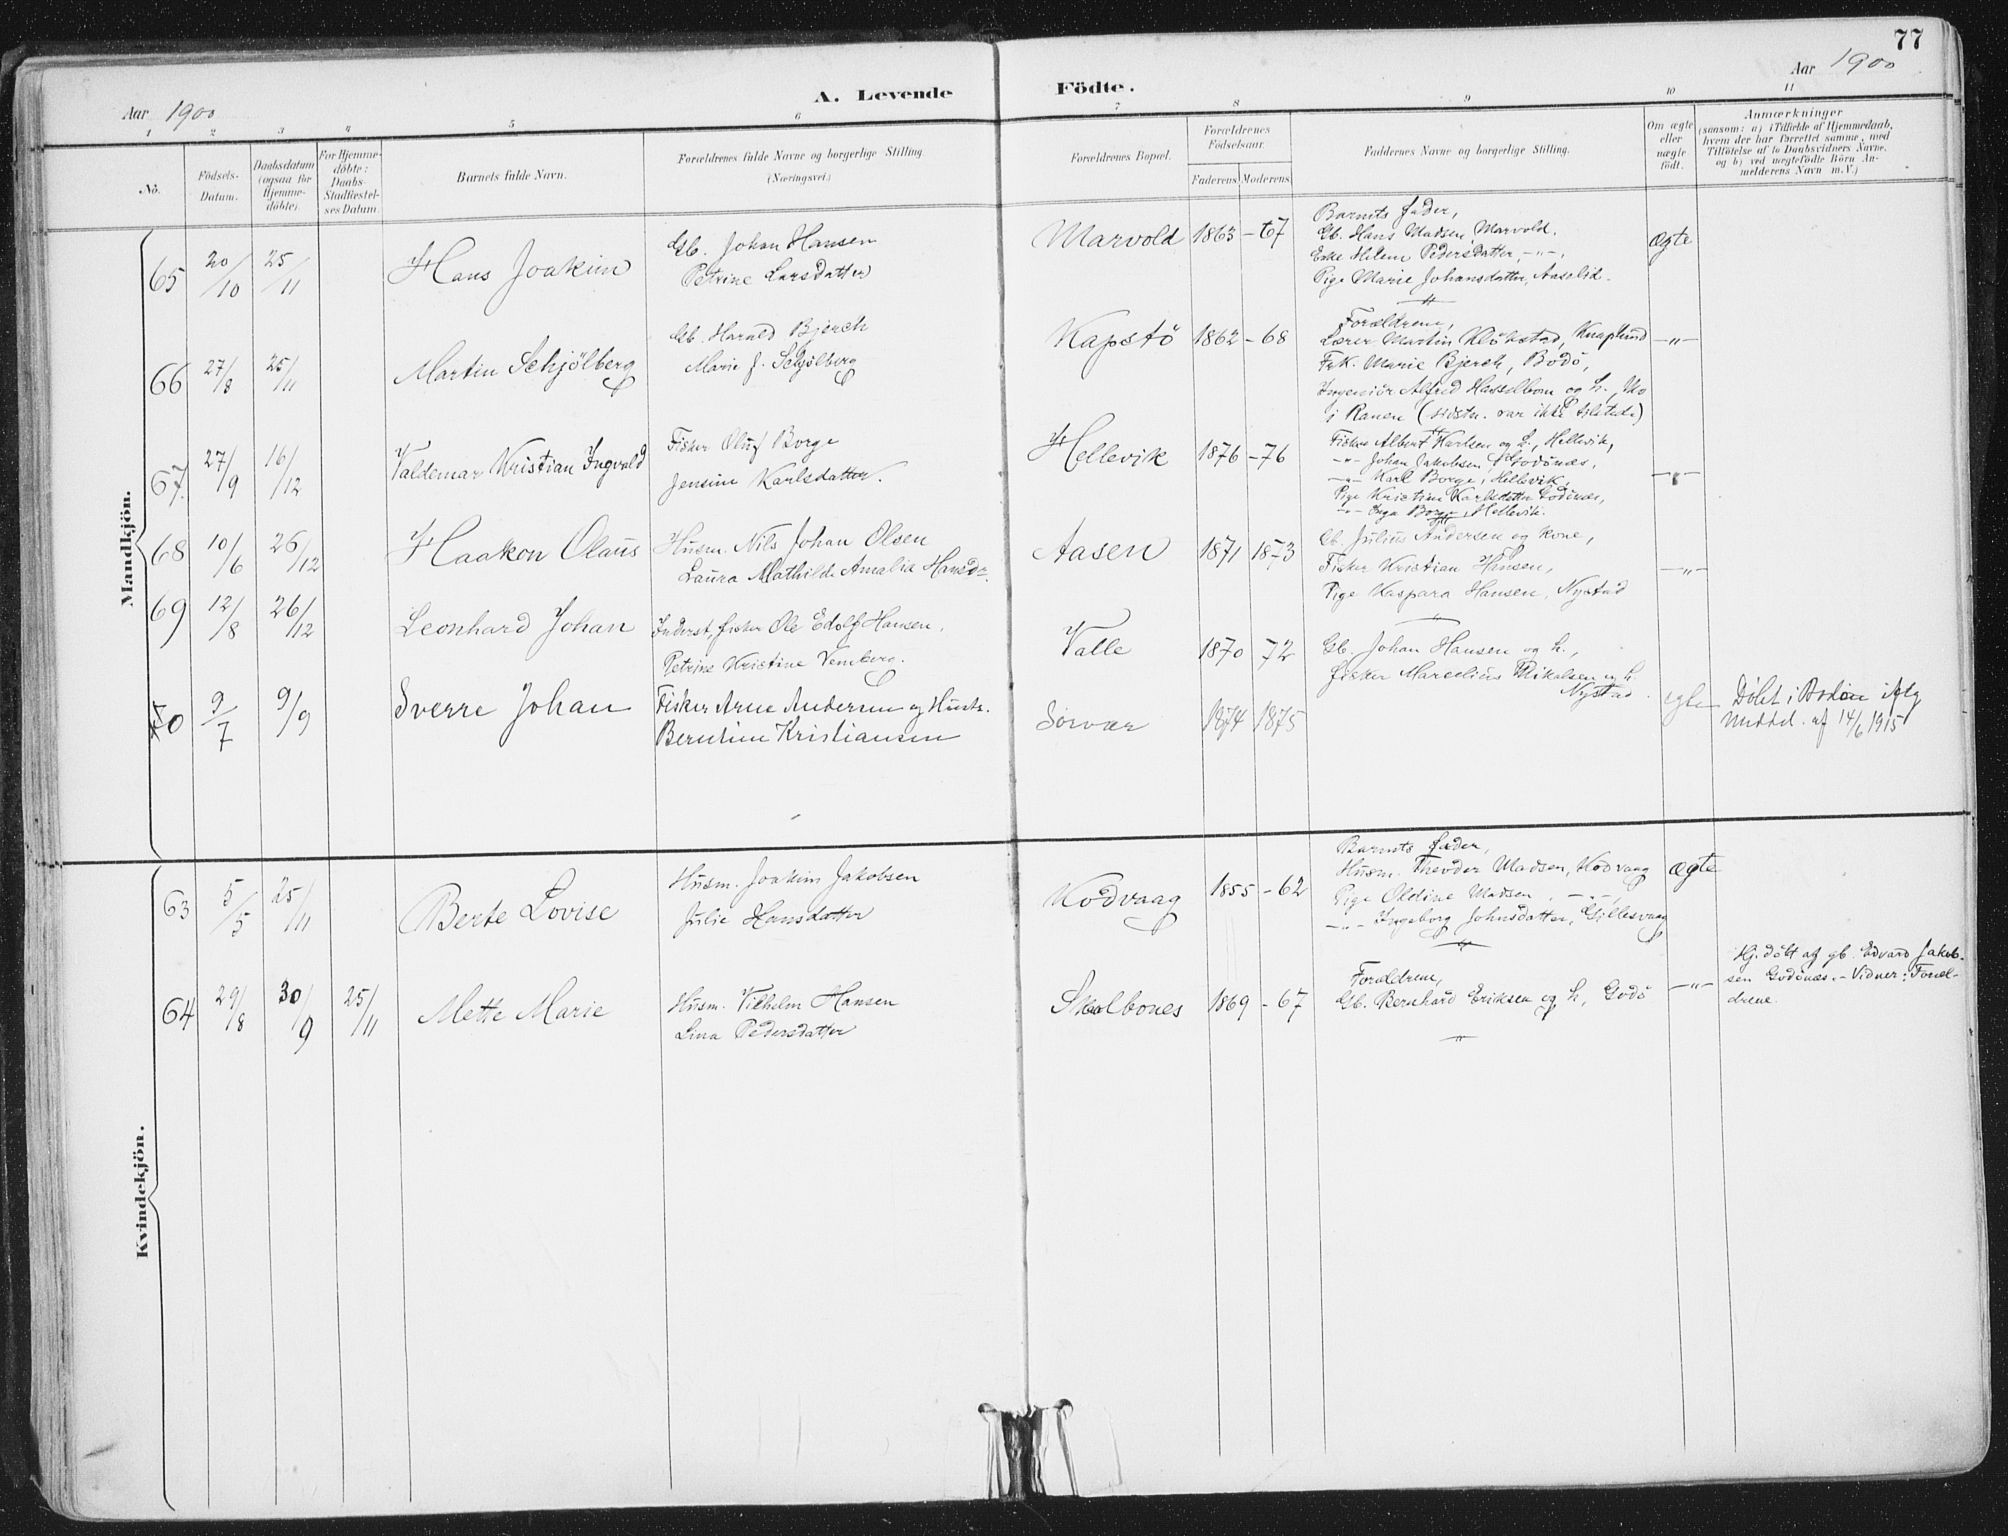 77
Aar 1900
A. Levende Födte.
Aar 1900
1 2 3 4 5 6 7 8 9 10 11
No.
Födsels-Datum.
Daabsdatum (ogsaa for Hjemme-döbte).
For Hjemme-döbte: Daabs-Stadfæstel-ses Datum.
Barnets fulde Navn.
Forældrenes fulde Navne og borgerlige Stilling.
(Næringsvei.)
Forældrenes Bopæl.
Forældrenes Födselsaar.
Faderens Moderens
Faddernes Navne og borgerlige Stilling.
Om ægte eller uægte födt.
Anmærkninger
(saasom: a) i Tilfælde af Hjemmedaab,
hvem der har forrettet samme, med
Tilföielse af to Daabsvidners Navne,
og b) ved uægtefödte Börn An-
melderens Navn m. V.)
Mandkjön.
65 20/10 25/11 Hans Joakim
Gb. Johan Hansen
Petrine Larsdatter
Marvold 1863 - 67
Barnets fader,
Gb. Hans Madsen, Marvold.
Enke Helene Pedersdatter, -"-,
Pige Marie Johansdatter, Aaselid.
ægte
66 27/8 25/11 Martin Schjölberg
Gb. Harald Bjerch
Marie J. Schjölberg
Kapstö 1862 - 68
Forældrene,
Lærer Martin Klökstad, Knaplund
Frk. Marie Bjerch, Bodö,
Ingeniör Alfred Hasselbom og h., Mo
i Ranen (sidstn. var ikke tilstede)
-"-
67 27/9 16/12 Valdemar Kristian Ingvald
Fisker Oluf Borge
Jensine Karlsdatter.
Hellevik 1876 - 76
Fisker Albert Karlsen og h., Hellevik,
-"- Johan Jakobsen, Godönæs,
-"- Karl Borge, Hellevik,
Pige Kristine Karlsdatter Godönæs,
-"- Inga Borge, Hellevik.
-"-
68 10/6 26/12 Haakon Olaus
Husm. Nils Johan Olsen
Laura Mathilde Amalia Hansd.
Aasen 1871 1873
Gb. Julius Andersen og kone,
Fisker Kristian Hansen,
Pige Kaspara Hansen, Nystad
-"-
69 12/8 26/12 Leonhard Johan
Inderst, fisker Ole Edolf Hansen,
Petrine Kristine Vemberg.
Valle 1870 72
Gb. Johan Hansen og h.,
fisker Marcelius Mikalsen og h.
Nystad
70 9/7 9/9 Sverre Johan
Fisker Arne Andersen og Hustr.
Berntine Kristiansen
Sörvær 1874 1875
egte
Döbt i Bodin iflg
Meddel. af 14/6 1915
Kvindekjön.
63 5/5 25/11 Berte Lovise
Husm. Joakim Jakobsen
Julie Hansdatter
Kodvaag 1855 - 62
Barnets fader,
Husm. Theodor Madsen, Kodvaag
Pige Oldine Madsen, -"-,
-"- Ingeborg Johnsdatter, Gillesvaag
ægte
64 29/8 30/9 25/11 Mette Marie
Husm. Vilhelm Hansen
Lina Pedersdatter
Skalbones 1869 - 67
Forældrene,
Gb. Bernhard Eriksen og h., Godö
-"-
Hj. döbt af gb. Edvard Jakob-
sen Godönæs. - Vidner: Foræl-
drene.